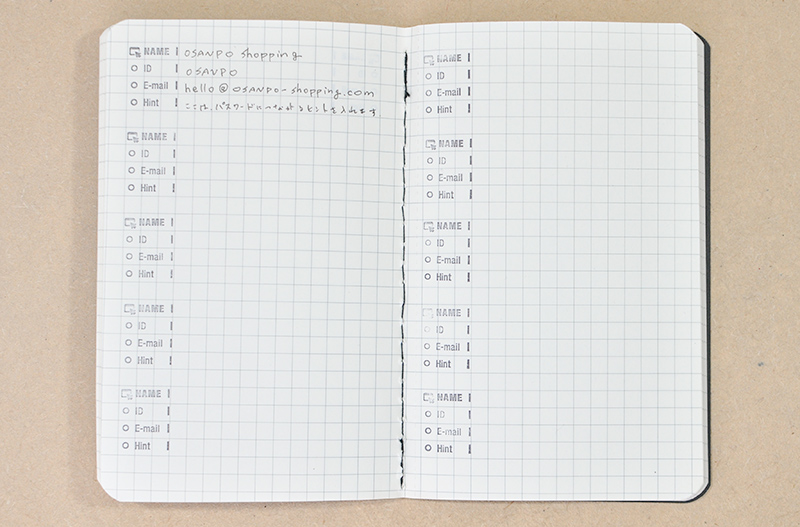 NAME OSANPO shopping
ID OSANPO
E-mail hello@OSANPO-shopping.com
Hint ここは、パスワードにつながるヒントを入れます
NAME
ID
E-mail
Hint
NAME
ID
E-mail
Hint
NAME
ID
E-mail
Hint
NAME
ID
E-mail
Hint
NAME
ID
E-mail
Hint
NAME
ID
E-mail
Hint
NAME
ID
E-mail
Hint
NAME
ID
E-mail
Hint
NAME
ID
E-mail
Hint